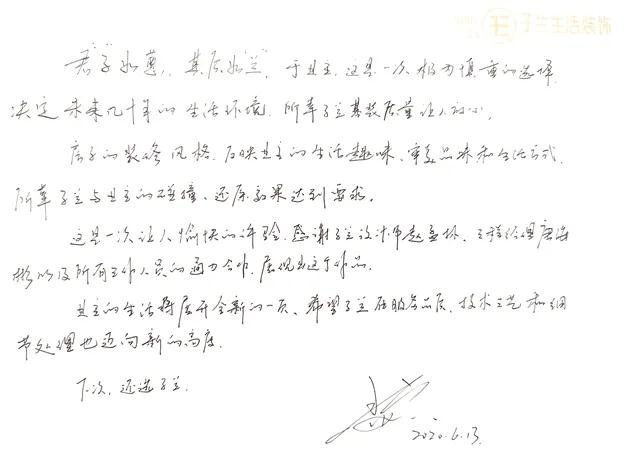 子兰生活装饰
“君子如蕙,其质如兰”,于业主,这是一次极为慎重的选择,
决定未来几十年的生活环境,所幸子兰基装质量让人放心。
房子的装修风格,反映业主的生活趣味、审美品味和生活方式,
所幸子兰与业主的碰撞,还原效果达到要求。
这是一次让人愉快的体验,感谢子兰设计师赵 工程经理唐
以及所有工作人员的通力合作,展现出这个作品。
业主的生活将展开全新的一页,希望子兰在服务品质、技术工艺和细
节处理也迈向新的高度。
下次,还选子兰。
2020.6.13